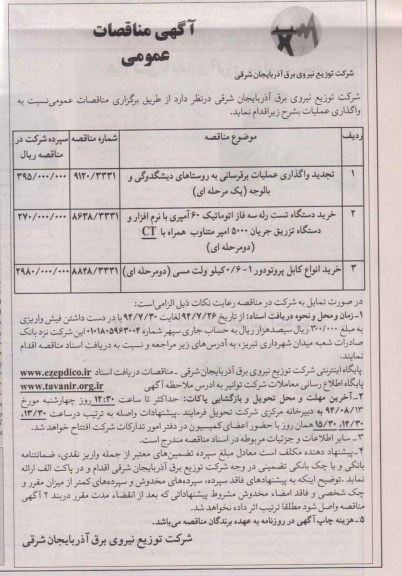 آگهی مناقصات
عمومی
شرکت توزیع نیروی برق آذربایجان شرقی
شرکت توزیع نیروی برق آذربایجان شرقی درنظر دارد از طریق برگزاری مناقصات عمومی نسبت به
واگذاری عملیات بشرح زیر اقدام نماید.
ردیف موضوع مناقصه شماره مناقصه سپرده شرکت در مناقصه ریال
۱ تجدید واگذاری عملیات برقرسانی به روستاهای دیشگدوگی و ۹۱۲۰/۳۳۳۱ ۳۹۵/۰۰۰/۰۰۰
بالوجه (یک مرحله ای)
۲ خرید دستگاه تست رله سه فاز اتوماتیک ۶۰ آمپری با نرم افزار و ۸۶۳۸/۳۳۳۱ ۲۷۰/۰۰۰/۰۰۰
دستگاه تزریق جریان ۵۰۰۰ امپر متناوب همراه با CT
(دومرحله ای)
۳ خرید انواع کابل پروتودور ۱-۰/۶ کیلو ولت مسی (دومرحله ای) ۸۸۴۸/۳۳۳۱ ۲۹۸۰/۰۰۰/۰۰۰
در صورت تمایل به شرکت در مناقصه رعایت نکات ذیل الزامی است:
۱- زمان ومحل و نحوه دریافت اسناد: از تاریخ ۹۴/۷/۲۶ لغایت ۹۴/۷/۳۰ با در دست داشتن فیش واریزی
به مبلغ ۳۰۰/۰۰۰ ریال سیصدهزار ریال به حساب جاری سپهر شماره ۰۱۰۱۸۰۵۹۶۳۰۰۴ این شرکت نزد بانک
صادرات شعبه میدان شهرداری تبریز، به آدرس‌های زیر مراجعه و نسبت به دریافت اسناد مناقصه اقدام
نمایند.
پایگاه اینترنتی شرکت توزیع نیروی برق آذربایجان شرقی - مناقصات دریافت اسناد www.ezepdico.ir
پایگاه اطلاع رسانی معاملات شرکت توانیر به ادرس ملاحظه آگهی www.tavanir.org.ir
۲- آخرین مهلت و محل تحویل و بازگشایی پاکات: حداکثر تا ساعت ۱۲:۳۰ روز چهارشنبه مورخ
۹۴/۰۸/۱۳ به دبیرخانه مرکزی شرکت تحویل فرمایند. پیشنهادات واصله به ترتیب درساعت ۱۳/۳۰،
۱۴/۳۰، ۱۵/۳۰ همان روز با حضور اعضای کمیسیون در دفتر امور تدارکات شرکت افتتاح خواهد شد.
۳- سایر اطلاعات و جزئیات مربوطه در اسناد مناقصه مندرج است.
۴- پیشنهاد دهنده مکلف است معادل مبلغ سپرده تضمین‌های معتبر از جمله واریز نقدی، ضمانتنامه
بانکی و یا چک بانکی تضمینی در وجه شرکت توزیع برق آذربایجان شرقی اقدام و در پاکت الف ارائه
نماید. توضیح اینکه به پیشنهادهای فاقد سپرده، سپرده‌های مخدوش و سپرده‌های کمتر از میزان مقرر و
چک شخصی و فاقد امضاء مخدوش مشروط پیشنهاداتی که بعد از انقضاء مدت مقرر دربند ۲ آگهی
مناقصه واصل شود مطلقا ترتیب اثر داده نخواهد شد.
۵- هزینه چاپ آگهی در روزنامه به عهده برندگان مناقصه می‌باشد.
شرکت توزیع نیروی برق آذربایجان شرقی